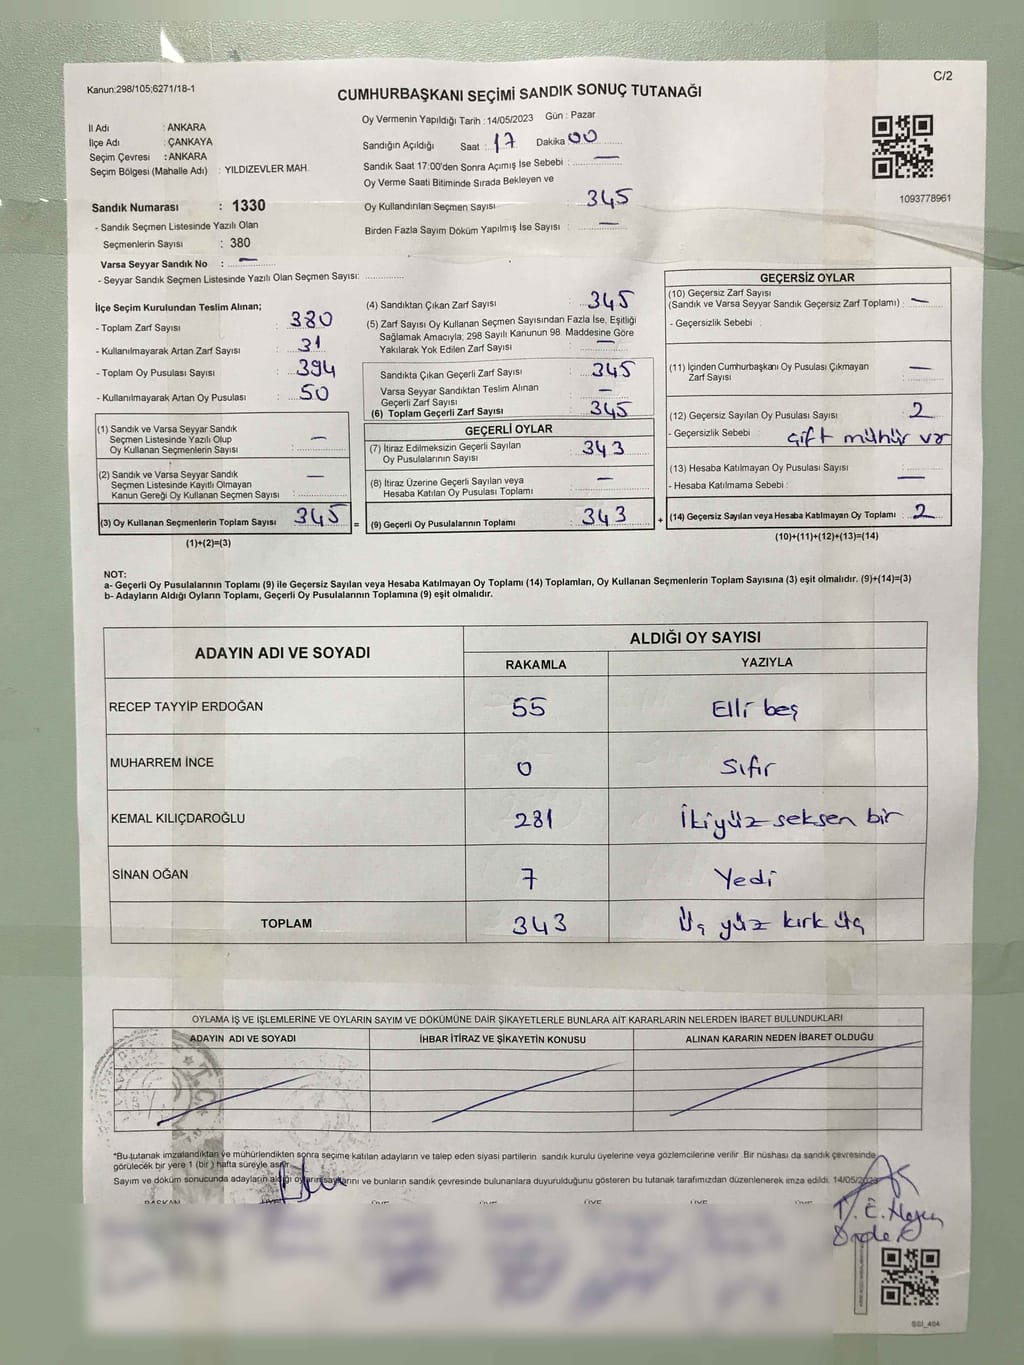 C/2
Kanun:298/105;6271/18-1
CUMHURBAŞKANI SEÇİMİ SANDIK SONUÇ TUTANAĞI
İl Adı : ANKARA
İlçe Adı : ÇANKAYA
Seçim Çevresi : ANKARA
Seçim Bölgesi (Mahalle Adı) : YILDIZEVLER MAH.
Oy Vermenin Yapıldığı Tarih : 14/05/2023 Gün : Pazar
Sandığın Açıldığı Saat : 17 Dakika 00
Sandık Saat 17:00'den Sonra Açımış İse Sebebi : —
Oy Verme Saati Bitiminde Sırada Bekleyen ve
Oy Kullandırılan Seçmen Sayısı : 345
Birden Fazla Sayım Döküm Yapılmış İse Sayısı : —
1093778961
Sandık Numarası : 1330
- Sandık Seçmen Listesinde Yazılı Olan
Seçmenlerin Sayısı : 380
Varsa Seyyar Sandık No : —
- Seyyar Sandık Seçmen Listesinde Yazılı Olan Seçmen Sayısı:
İlçe Seçim Kurulundan Teslim Alınan;
- Toplam Zarf Sayısı : 380
- Kullanılmayarak Artan Zarf Sayısı : 31
- Toplam Oy Pusulası Sayısı : 394
- Kullanılmayarak Artan Oy Pusulası : 50
(1) Sandık ve Varsa Seyyar Sandık
Seçmen Listesinde Yazılı Olup
Oy Kullanan Seçmenlerin Sayısı : —
(2) Sandık ve Varsa Seyyar Sandık
Seçmen Listesinde Kayıtlı Olmayan
Kanun Gereği Oy Kullanan Seçmen Sayısı : —
(3) Oy Kullanan Seçmenlerin Toplam Sayısı 345 =
(1)+(2)=(3)
(4) Sandıktan Çıkan Zarf Sayısı : 345
(5) Zarf Sayısı Oy Kullanan Seçmen Sayısından Fazla İse, Eşitliği
Sağlamak Amacıyla; 298 Sayılı Kanunun 98. Maddesine Göre
Yakılarak Yok Edilen Zarf Sayısı : —
Sandıkta Çıkan Geçerli Zarf Sayısı : 345
Varsa Seyyar Sandıktan Teslim Alınan
Geçerli Zarf Sayısı : —
(6) Toplam Geçerli Zarf Sayısı : 345
GEÇERLİ OYLAR
(7) İtiraz Edilmeksizin Geçerli Sayılan
Oy Pusulalarının Sayısı : 343
(8) İtiraz Üzerine Geçerli Sayılan veya
Hesaba Katılan Oy Pusulası Toplamı : —
(9) Geçerli Oy Pusulalarının Toplamı : 343 +
GEÇERSİZ OYLAR
(10) Geçersiz Zarf Sayısı
(Sandık ve Varsa Seyyar Sandık Geçersiz Zarf Toplamı) : —
- Geçersizlik Sebebi :
(11) İçinden Cumhurbaşkanı Oy Pusulası Çıkmayan
Zarf Sayısı : —
(12) Geçersiz Sayılan Oy Pusulası Sayısı : 2
- Geçersizlik Sebebi : çift mühür var
(13) Hesaba Katılmayan Oy Pusulası Sayısı :
- Hesaba Katılmama Sebebi : —
(14) Geçersiz Sayılan veya Hesaba Katılmayan Oy Toplamı : 2
(10)+(11)+(12)+(13)=(14)
NOT:
a- Geçerli Oy Pusulalarının Toplamı (9) ile Geçersiz Sayılan veya Hesaba Katılmayan Oy Toplamı (14) Toplamları, Oy Kullanan Seçmenlerin Toplam Sayısına (3) eşit olmalıdır. (9)+(14)=(3)
b- Adayların Aldığı Oyların Toplamı, Geçerli Oy Pusulalarının Toplamına (9) eşit olmalıdır.
ADAYIN ADI VE SOYADI
ALDIĞI OY SAYISI
RAKAMLA YAZIYLA
RECEP TAYYİP ERDOĞAN 55 Elli beş
MUHARREM İNCE 0 Sıfır
KEMAL KILIÇDAROĞLU 281 İkiyüz seksen bir
SİNAN OĞAN 7 Yedi
TOPLAM 343 Üç yüz kırk üç
OYLAMA İŞ VE İŞLEMLERİNE VE OYLARIN SAYIM VE DÖKÜMÜNE DAİR ŞİKAYETLERLE BUNLARA AİT KARARLARIN NELERDEN İBARET BULUNDUKLARI
ADAYIN ADI VE SOYADI İHBAR İTİRAZ VE ŞİKAYETİN KONUSU ALINAN KARARIN NEDEN İBARET OLDUĞU
T.C.
*Bu tutanak imzalandıktan ve mühürlendikten sonra seçime katılan adayların ve talep eden siyasi partilerin sandık kurulu üyelerine veya gözlemcilerine verilir. Bir nüshası da sandık çevresinde
görülecek bir yere 1 (bir) hafta süreyle asılır.
Sayım ve döküm sonucunda adayların aldığı oyların sayılarını ve bunların sandık çevresinde bulunanlara duyurulduğunu gösteren bu tutanak tarafımızdan düzenlenerek imza edildi. 14/05/2023
BAŞKAN ÜYE ÜYE ÜYE ÜYE ÜYE